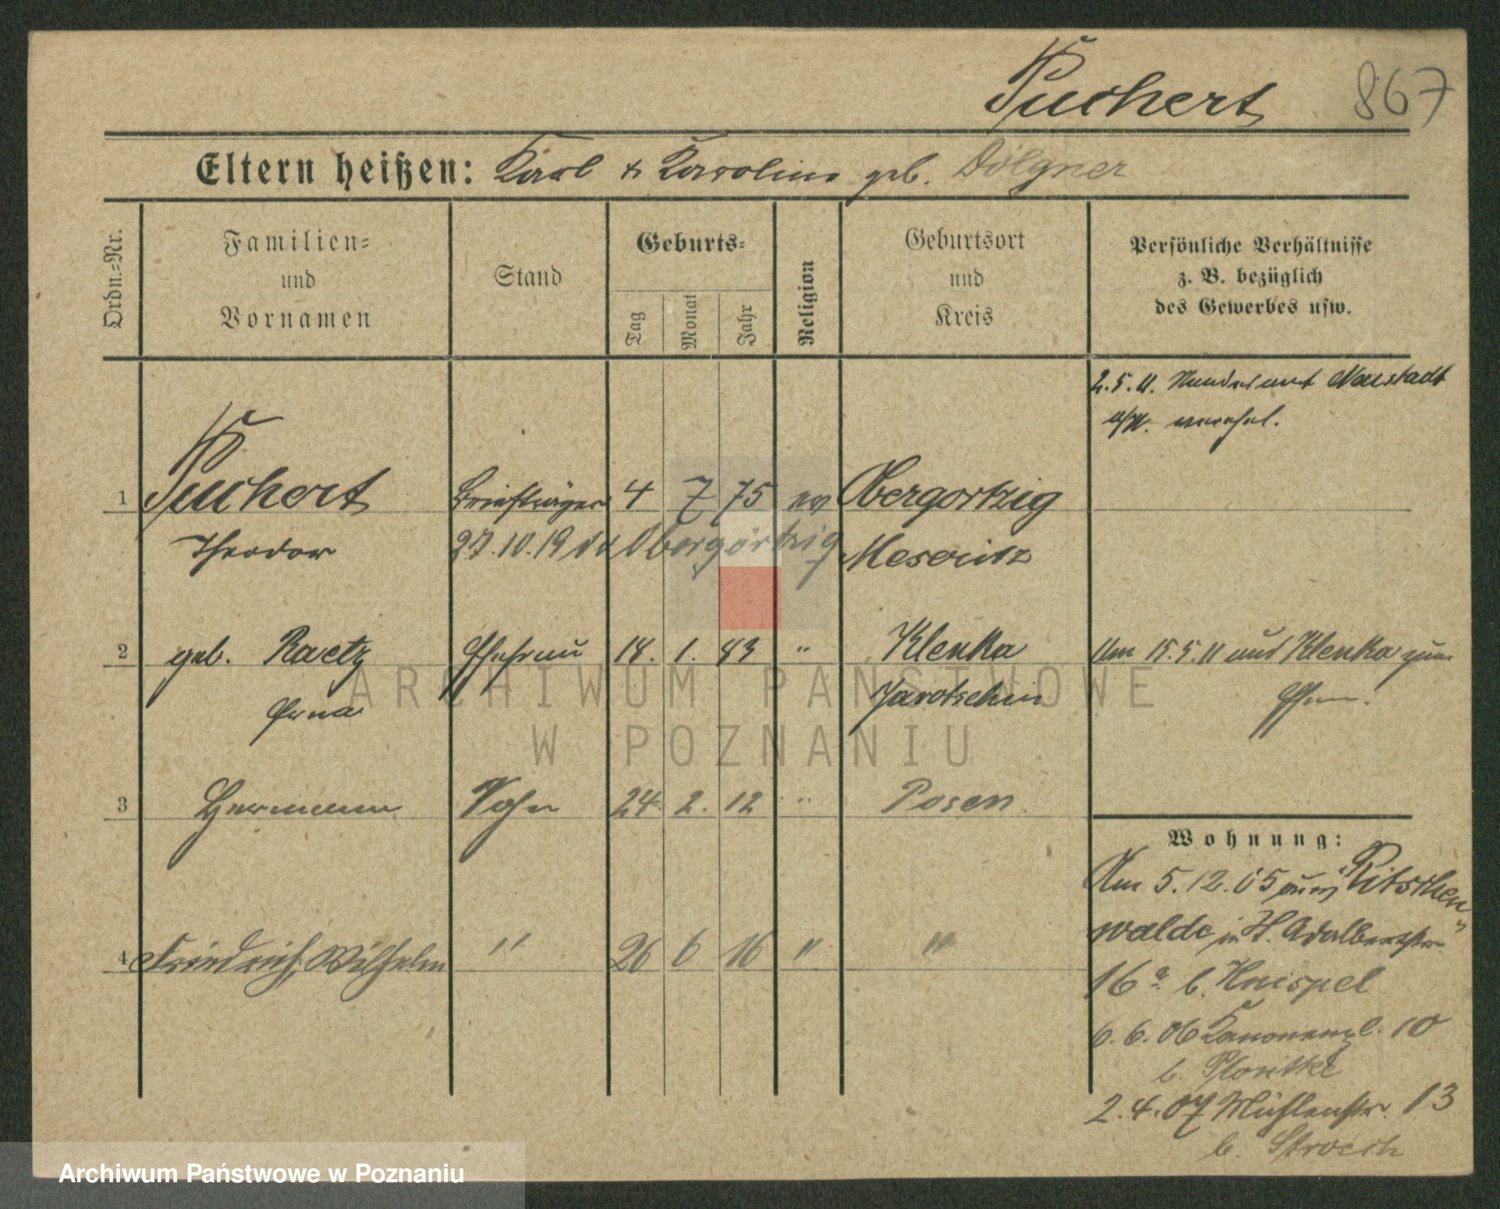 Puchert 867
Eltern heißen: Karl & Karoline geb. Dölgner
Ordn.=Nr.
Familien=
und
Vornamen
Stand
Geburts=
Tag
Monat
Jahr
Religion
Geburtsort
und
Kreis
Persönliche Verhältnisse
z. B. bezüglich
des Gewerbes usw.
2.5.11. Neustadt
1 Puchert Briefträger 4 7 75 ev Obergortzig
Theodor 27.10.19 Obergörtzig Meseritz
2 geb. Raetz Ehefrau 18. 1. 83 " Klenka Am 15.5.11 aus Klenka zum
Erna Jarotschin
3 Hermann Sohn 24. 2. 12 " Posen
4 Friedrich Wilhelm " 26 6 16 " "
Wohnung:
Am 5.12.05 aus "Ritschen
walde" in H. Adalbertstr
16a b. Haispel
6.6.06 Kanonenpl. 10
b.
2.4.07 Mühlenstr. 13
b.
ARCHIWUM PAŃSTWOWE
W POZNANIU
Archiwum Państwowe w Poznaniu